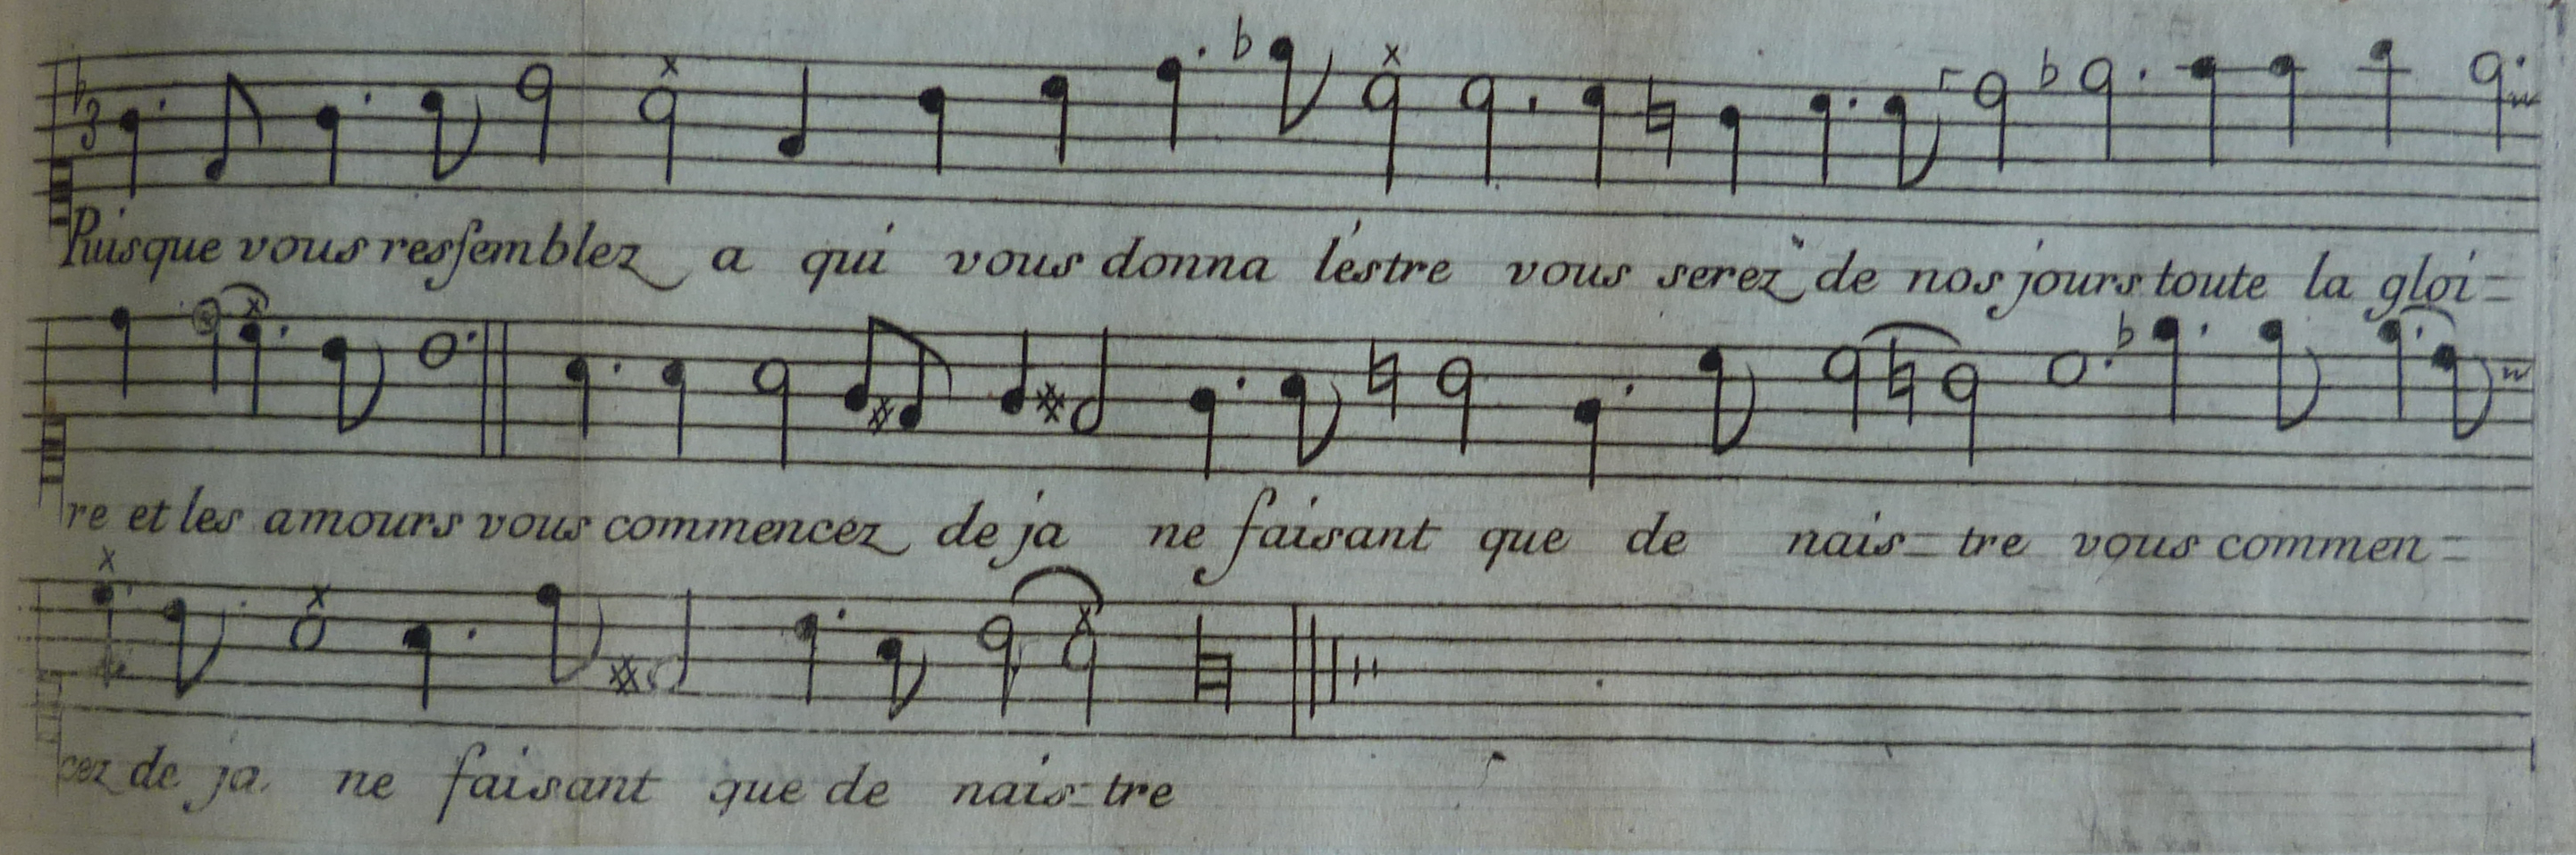 3
Puisque vous ressemblez a qui vous donna l'estre vous serez de nos jours toute la gloi=
re et les amours vous commencez de ja ne faisant que de nais=tre vous commen=
cez de ja. ne faisant que de nais=tre